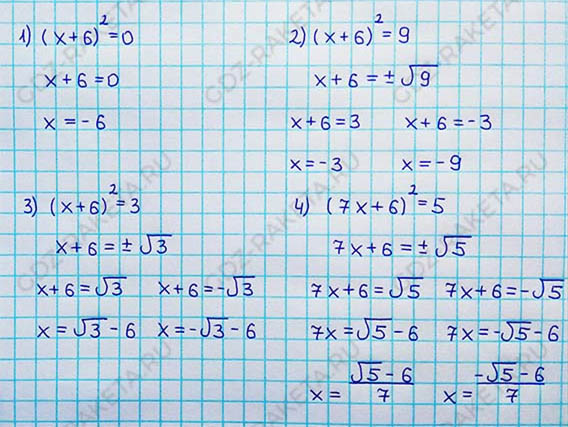 1) (x+6)²=0
x+6=0
x=-6
2) (x+6)²=9
x+6=±√9
x+6=3 x+6=-3
x=-3 x=-9
3) (x+6)²=3
x+6=±√3
x+6=√3 x+6=-√3
x=√3-6 x=-√3-6
4) (7x+6)²=5
7x+6=±√5
7x+6=√5 7x+6=-√5
7x=√5-6 7x=-√5-6
x=(√5-6)/7 x=(-√5-6)/7
GDZ-RAKETA.RU